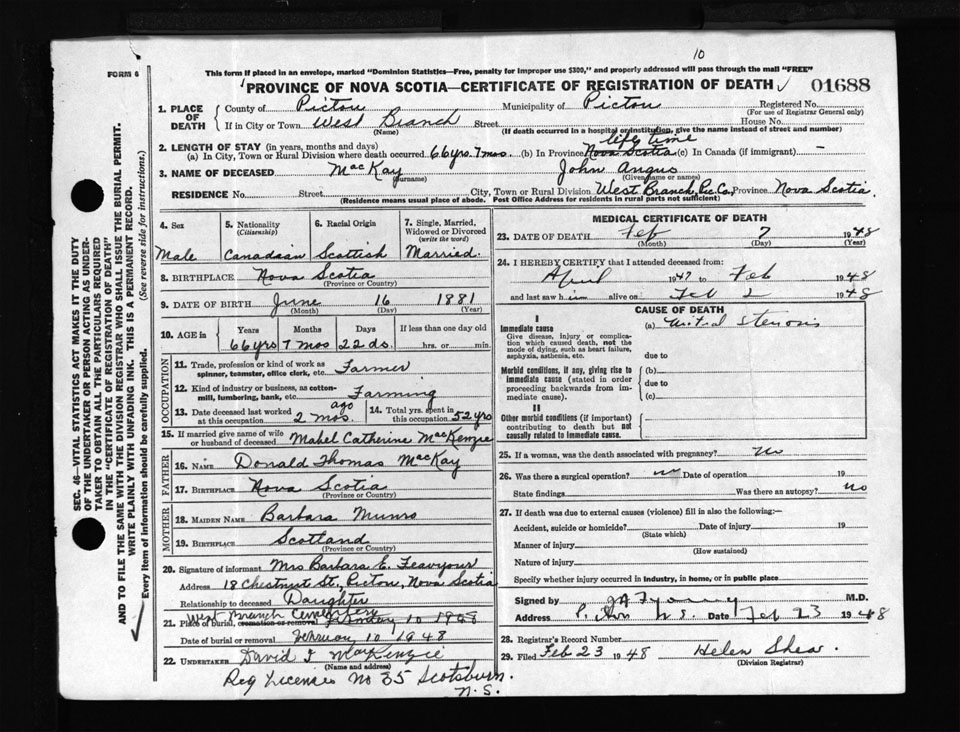 10
FORM 6
This form if placed in an envelope, marked "Dominion Statistics—Free, penalty for improper use $300," and properly addressed will pass through the mail "FREE"
PROVINCE OF NOVA SCOTIA—CERTIFICATE OF REGISTRATION OF DEATH 01688
1. PLACE OF DEATH
County of Pictou Municipality of Pictou Registered No.
(For use of Registrar General only)
If in City or Town West Branch Street House No.
(Name) (If death occurred in a hospital or institution, give the name instead of street and number)
2. LENGTH OF STAY (in years, months and days) life time
(a) In City, Town or Rural Division where death occurred 66 yrs. 7 mos. (b) In Province Nova Scotia (c) In Canada (if immigrant) —
3. NAME OF DECEASED MacKay John Angus
(Surname) (Given name or names)
RESIDENCE No. Street City, Town or Rural Division West Branch, Pic. Co., Province Nova Scotia
(Residence means usual place of abode. Post Office Address for residents in rural parts not sufficient)
4. Sex
Male
5. Nationality
(Citizenship)
Canadian
6. Racial Origin
Scottish
7. Single, Married, Widowed or Divorced
(write the word)
Married.
8. BIRTHPLACE Nova Scotia
(Province or Country)
9. DATE OF BIRTH June 16 1881
(Month) (Day) (Year)
10. AGE in
Years Months Days If less than one day old
66 yrs 7 mos 22 ds. hrs. or min.
OCCUPATION
11. Trade, profession or kind of work as
spinner, teamster, office clerk, etc. Farmer
12. Kind of industry or business, as cotton-
mill, lumbering, bank, etc. Farming
13. Date deceased last worked
at this occupation 2 mos. ago
14. Total yrs. spent in
this occupation 52 yrs
15. If married give name of wife
or husband of deceased Mabel Catherine MacKenzie
FATHER
16. NAME Donald Thomas MacKay
17. BIRTHPLACE Nova Scotia
(Province or Country)
MOTHER
18. MAIDEN NAME Barbara Munro
19. BIRTHPLACE Scotland
(Province or Country)
20. Signature of informant Mrs Barbara E. Feavyour
Address 18 Chestnut St., Pictou, Nova Scotia
Relationship to deceased Daughter
West Branch Cemetery
21. Place of burial, cremation or removal 10 1948
Date of burial or removal February 10 1948
22. UNDERTAKER David I MacKenzie
(Name and address)
Reg Licenses No 35 Scotsburn.
N.S.
MEDICAL CERTIFICATE OF DEATH
23. DATE OF DEATH Feb 7 1948
(Month) (Day) (Year)
24. I HEREBY CERTIFY that I attended deceased from:
April 1947 to Feb 1948
and last saw him alive on Feb 2 1948
CAUSE OF DEATH
I
Immediate cause (a) Mitral Stenosis
Give disease, injury or complica-
tion which caused death, not the
mode of dying, such as heart failure,
asphyxia, asthenia, etc. due to
Morbid conditions, if any, giving rise to (b)
immediate cause (stated in order due to
proceeding backwards from im-
mediate cause). (c)
II
Other morbid conditions (if important)
contributing to death but not
causally related to immediate cause.
25. If a woman, was the death associated with pregnancy? No
26. Was there a surgical operation? no Date of operation 19
State findings Was there an autopsy? no
27. If death was due to external causes (violence) fill in also the following:—
Accident, suicide or homicide? Date of injury 19
(State which)
Manner of injury
(How sustained)
Nature of injury
Specify whether injury occurred in industry, in home, or in public place
Signed by M.D.
Address N.S. Date Feb 23 1948
28. Registrar's Record Number
29. Filed Feb 23 1948 Helen Shea.
(Division Registrar)
SEC. 46—VITAL STATISTICS ACT MAKES IT THE DUTY
OF THE UNDERTAKER OR PERSON ACTING AS UNDER-
TAKER TO OBTAIN ALL THE PARTICULARS REQUIRED
IN THE "CERTIFICATE OF REGISTRATION OF DEATH"
AND TO FILE THE SAME WITH THE DIVISION REGISTRAR WHO SHALL ISSUE THE BURIAL PERMIT.
WRITE PLAINLY WITH UNFADING INK. THIS IS A PERMANENT RECORD.
Every item of information should be carefully supplied. (See reverse side for instructions.)